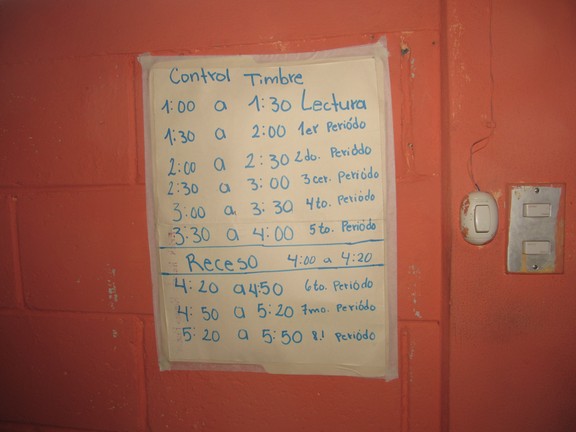 Control Timbre
1:00 a 1:30 Lectura
1:30 a 2:00 1er Periódo
2:00 a 2:30 2do. Periódo
2:30 a 3:00 3cer. periódo
3:00 a 3:30 4to. Periódo
3:30 a 4:00 5to. Periódo
Receso 4:00 a 4:20
4:20 a 4:50 6to. Periódo
4:50 a 5:20 7mo. Periódo
5:20 a 5:50 8.! Periódo